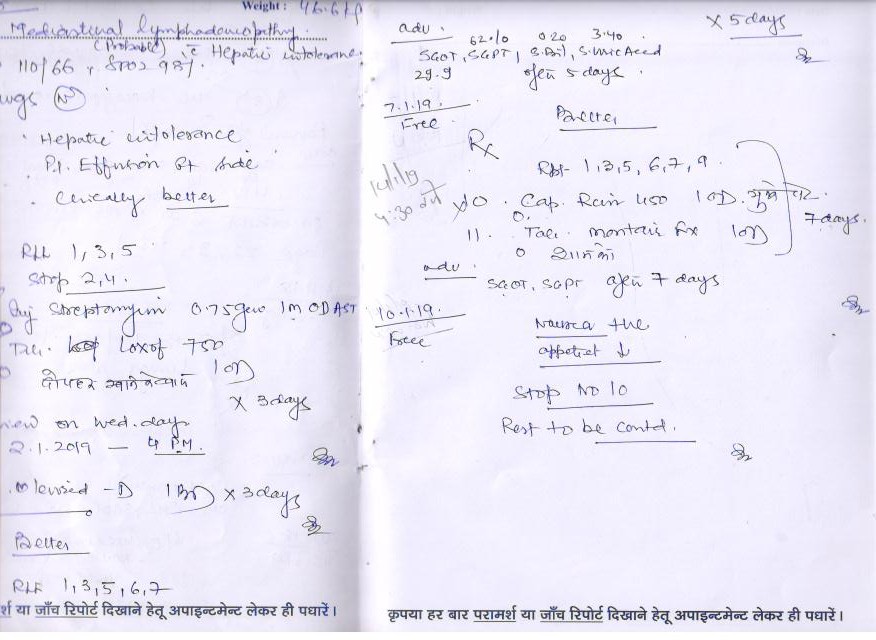 Weight: 46.6 kg
Mediastinal lymphadenopathy
(Probable) c Hepatic intolerance
110/66, SPO2 98%.
(N)
Hepatic intolerance
Pl. Effusion Rt side
Clinically better
Rpt 1, 3, 5
Stop 2, 4.
Inj Streptomycin 0.75gm IM OD AST
Tab. Loxof 750
1 OD
दोपहर खाने के बाद
x 3 days
on Wed. day
2.1.2019 — 4 P.M.
-D 1 BD x 3 days
Better
Rpt 1, 3, 5, 6, 7
र्श या जाँच रिपोर्ट दिखाने हेतू अपाइन्टमेन्ट लेकर ही पधारें।
adv.
x 5 days
62.10 0.20 3.40
SGOT, SGPT, S.Bil, S.Uric Acid
29.9
5 days.
7.1.19.
Free
Better
Rx
Rpt- 1, 3, 5, 6, 7, 9.
14/1/19
4:30
10. Cap. Rcin 450 1 OD.
7 days.
11. Tab. Montair fx 1 OD
शाम को
adv.
SGOT, SGPT 7 days
10.1.19.
Free
Nausea +ve
appetiet ↓
Stop NO 10
Rest to be contd.
कृपया हर बार परामर्श या जाँच रिपोर्ट दिखाने हेतू अपाइन्टमेन्ट लेकर ही पधारें।